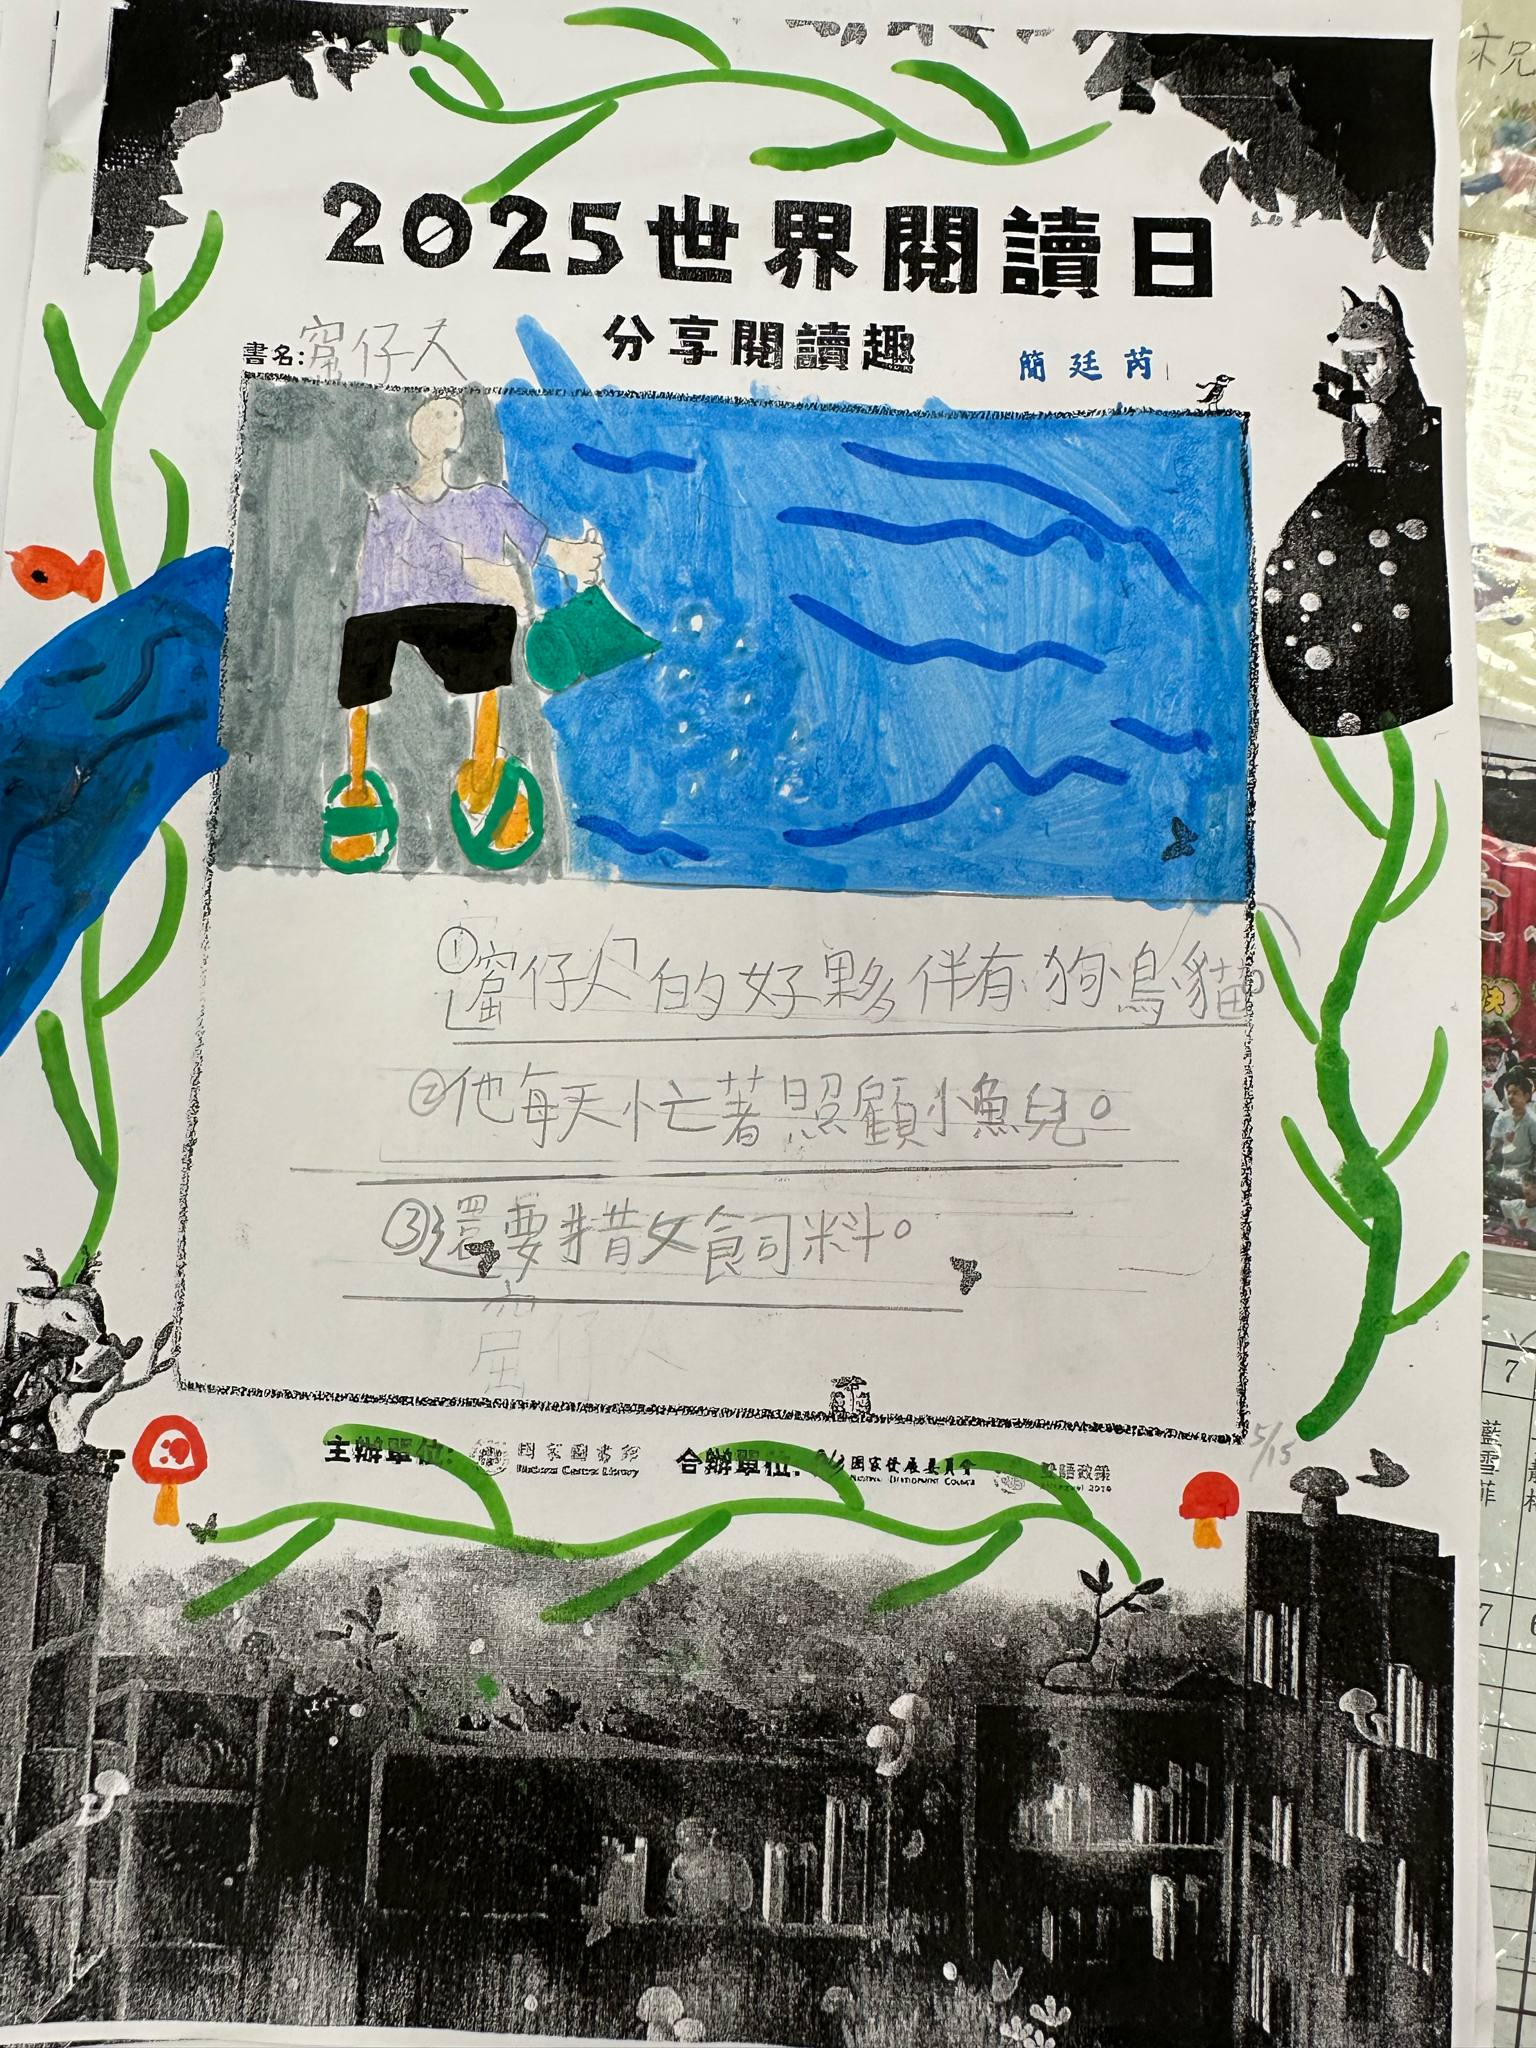 2025世界閱讀日
分享閱讀趣
書名:窟仔人
簡廷芮
①「窟仔人」的好夥伴有狗鳥貓。
②他每天忙著照顧小魚兒。
③還要撒飼料。
窟仔人
主辦單位: 國家圖書館 National Central Library 合辦單位: 國家發展委員會 National Development Council 雙語政策
5/15
祝
快
7
藍雪菲
7